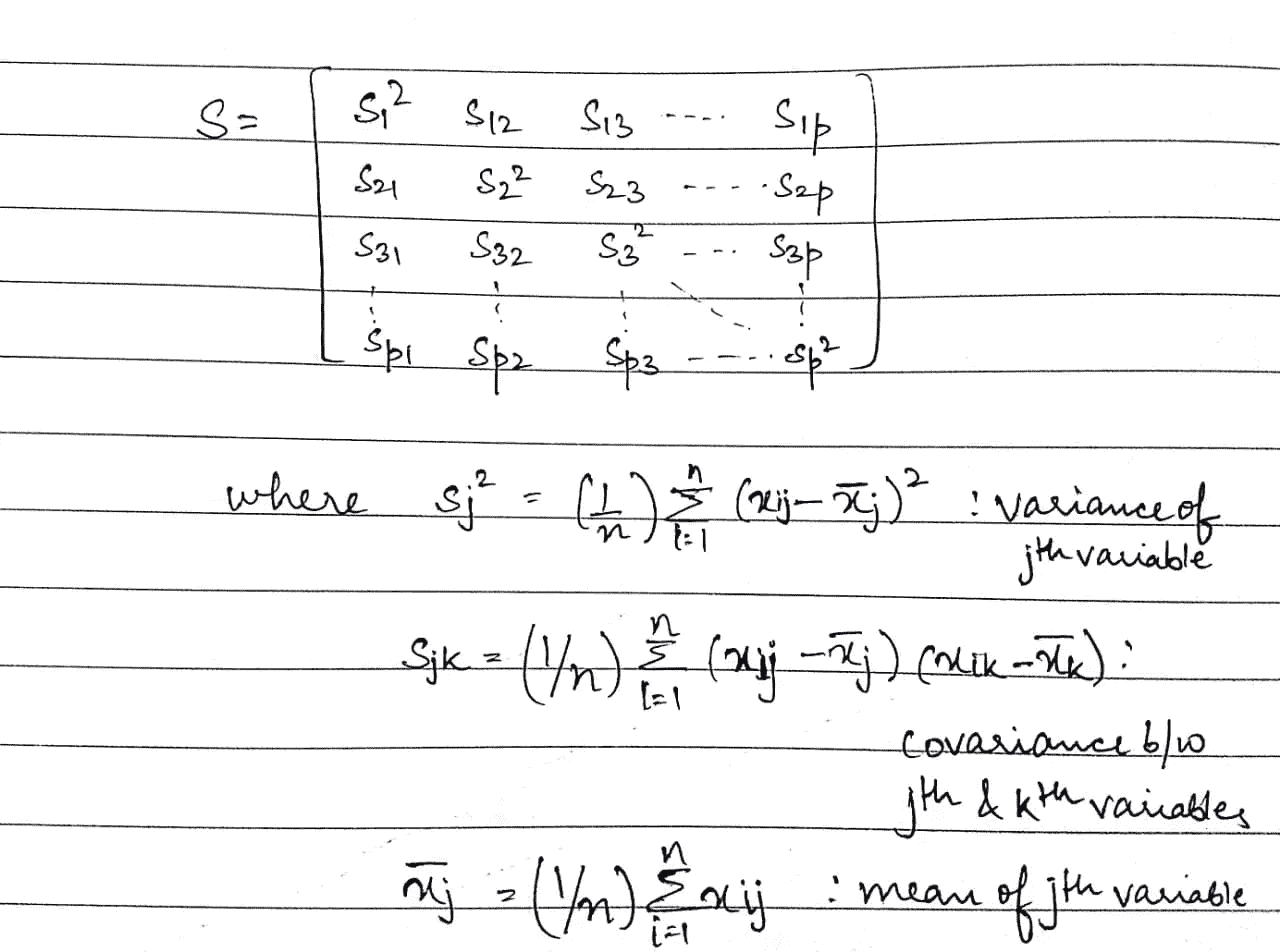 S = [ S₁² S₁₂ S₁₃ ---- S₁p
S₂₁ S₂² S₂₃ ---- S₂p
S₃₁ S₃₂ S₃² ---- S₃p
⋮ ⋮ ⋮ ⋱ ⋮
Sp₁ Sp₂ Sp₃ ---- Sp² ]
where Sj² = (1/n) Σⁿᵢ₌₁ (xij – x̄j)² : variance of
jth variable
Sjk = (1/n) Σⁿᵢ₌₁ (xij – x̄j) (xik – x̄k) :
covariance b/w
jth & kth variables
x̄j = (1/n) Σⁿᵢ₌₁ xij : mean of jth variable